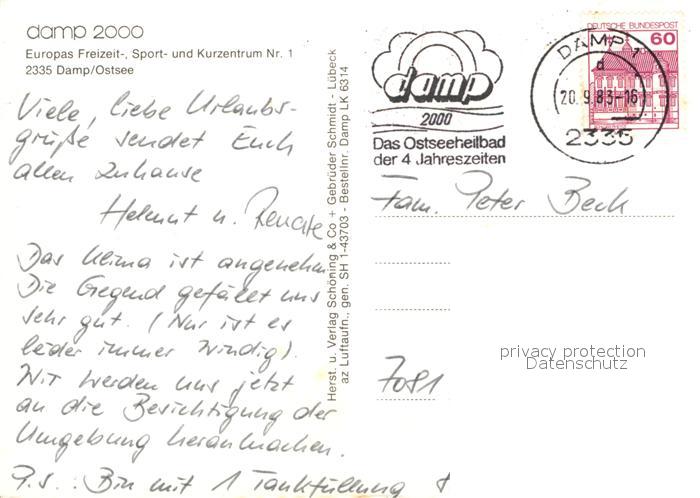 damp 2000
Europas Freizeit-, Sport- und Kurzentrum Nr. 1
2335 Damp/Ostsee
Viele, liebe Urlaubs-
grüße sendet Euch
allen Zuhause
Helmut u. Renate
Das Klima ist angenehm
Die Gegend gefällt uns
sehr gut. (Nur ist es
leider immer windig).
Wir werden uns jetzt
an die Besichtigung der
Umgebung heranmachen.
P.S.: Bin mit 1 Tankfüllung
Herst. u. Verlag Schöning & Co + Gebrüder Schmidt - Lübeck
az Luftaufn., gen. SH 1-43703 - Bestellnr. Damp LK 6314
damp
2000
Das Ostseeheilbad
der 4 Jahreszeiten
DAMP 1
d
20.9.83-16
2335
DEUTSCHE BUNDESPOST
60
Fam. Peter Beck
7081
privacy protection
Datenschutz